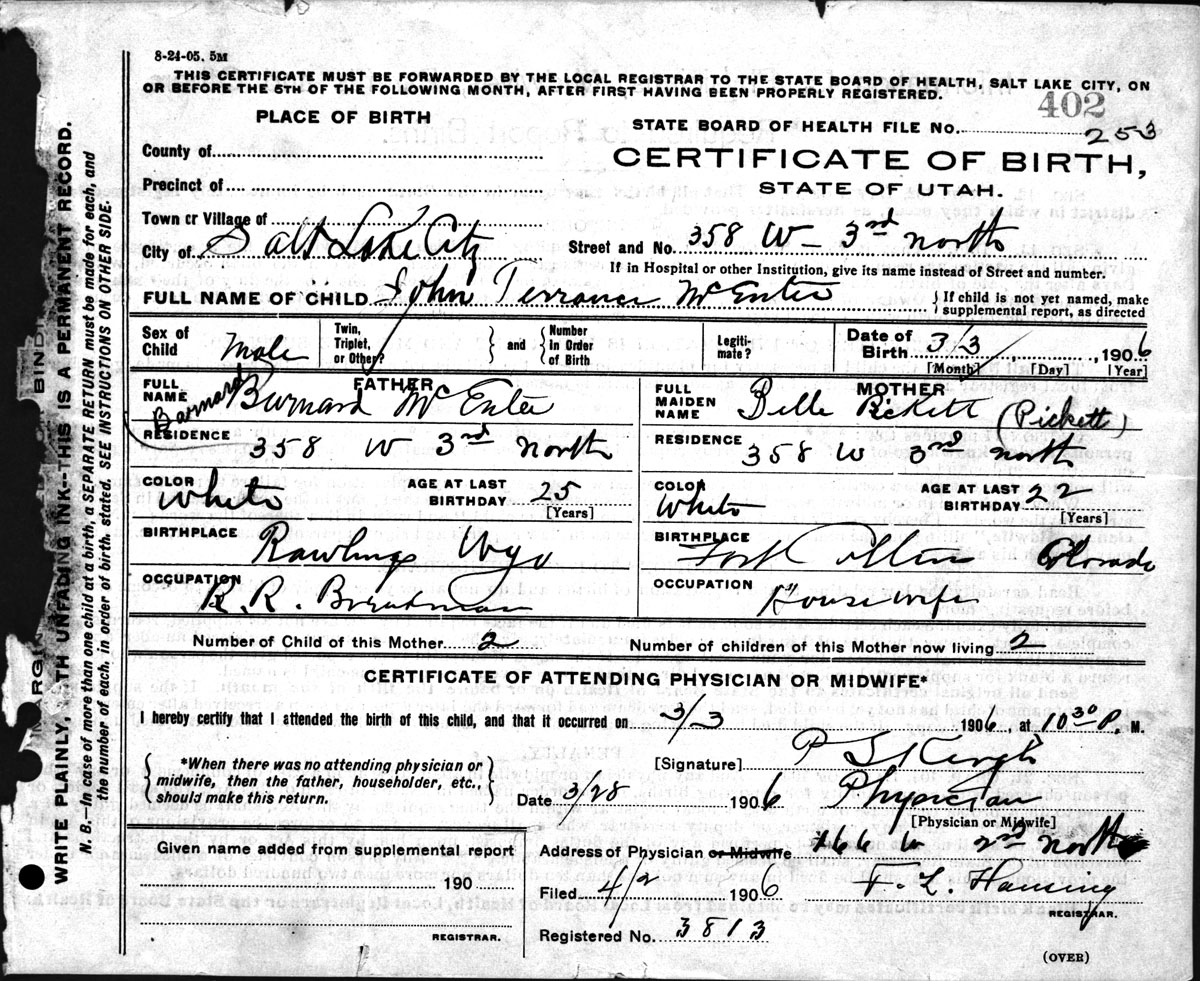 8-24-05. 5M
THIS CERTIFICATE MUST BE FORWARDED BY THE LOCAL REGISTRAR TO THE STATE BOARD OF HEALTH, SALT LAKE CITY, ON
OR BEFORE THE 5TH OF THE FOLLOWING MONTH, AFTER FIRST HAVING BEEN PROPERLY REGISTERED.
402
PLACE OF BIRTH
STATE BOARD OF HEALTH FILE NO. 253
County of
CERTIFICATE OF BIRTH,
Precinct of
STATE OF UTAH.
Town or Village of
City of Salt Lake City
Street and No. 358 W - 3rd north
If in Hospital or other Institution, give its name instead of Street and number.
FULL NAME OF CHILD John Terrance McEnter
If child is not yet named, make supplemental report, as directed
Sex of Child Male
Twin, Triplet, or Other?
and
Number in Order of Birth
Legitimate?
Date of Birth 3/3, 1906
[Month] [Day] [Year]
FATHER
FULL NAME Burnard McEnter
Barnard
RESIDENCE 358 W 3rd North
COLOR White
AGE AT LAST BIRTHDAY 25
[Years]
BIRTHPLACE Rawlings Wyo
OCCUPATION R. R.
MOTHER
FULL MAIDEN NAME Belle Pickett (Pickett)
RESIDENCE 358 W 3rd north
COLOR White
AGE AT LAST BIRTHDAY 22
[Years]
BIRTHPLACE Fort Collins Colorado
OCCUPATION Housewife
Number of Child of this Mother 2
Number of children of this Mother now living 2
CERTIFICATE OF ATTENDING PHYSICIAN OR MIDWIFE*
I hereby certify that I attended the birth of this child, and that it occurred on 3/3 1906, at 10 30 P. M.
*When there was no attending physician or midwife, then the father, householder, etc., should make this return.
[Signature] P S
Date 3/28 1906 Physician
[Physician or Midwife]
Given name added from supplemental report
190
REGISTRAR.
Address of Physician or Midwife 166 W 2nd North
Filed 4/2 1906 F. L. Hansing
REGISTRAR.
Registered No. 3813
(OVER)
MARGIN BINDI
WRITE PLAINLY, WITH UNFADING INK--THIS IS A PERMANENT RECORD.
N. B.—In case of more than one child at a birth, a SEPARATE RETURN must be made for each, and
the number of each, in order of birth stated. SEE INSTRUCTIONS ON OTHER SIDE.